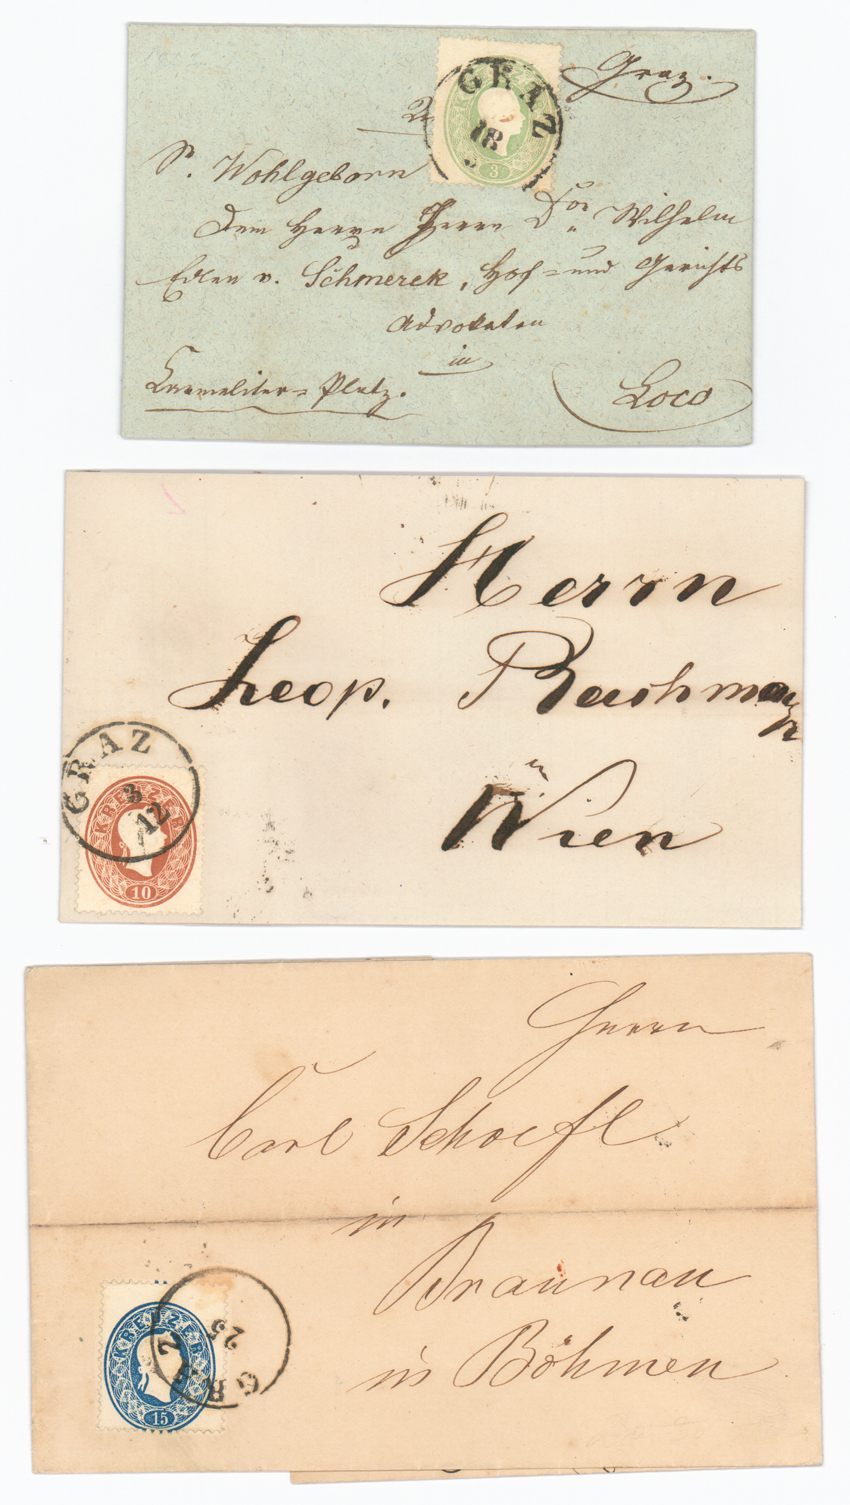 Graz.
GRAZ
18
KREUZER
3
Sr. Wohlgeborn
dem Herrn Herrn Dor Wilhelm
Edlen v. Schmerek, Hof- und Gerichts
Advokaten
in
Carmeliter-Platz.
Loco
Herrn
Leop. Bachmayr
in
Wien
GRAZ
3
12
KREUZER
10
Herrn
Carl Schoefl
in
Braunau
in Böhmen
GRAZ
25
KREUZER
15